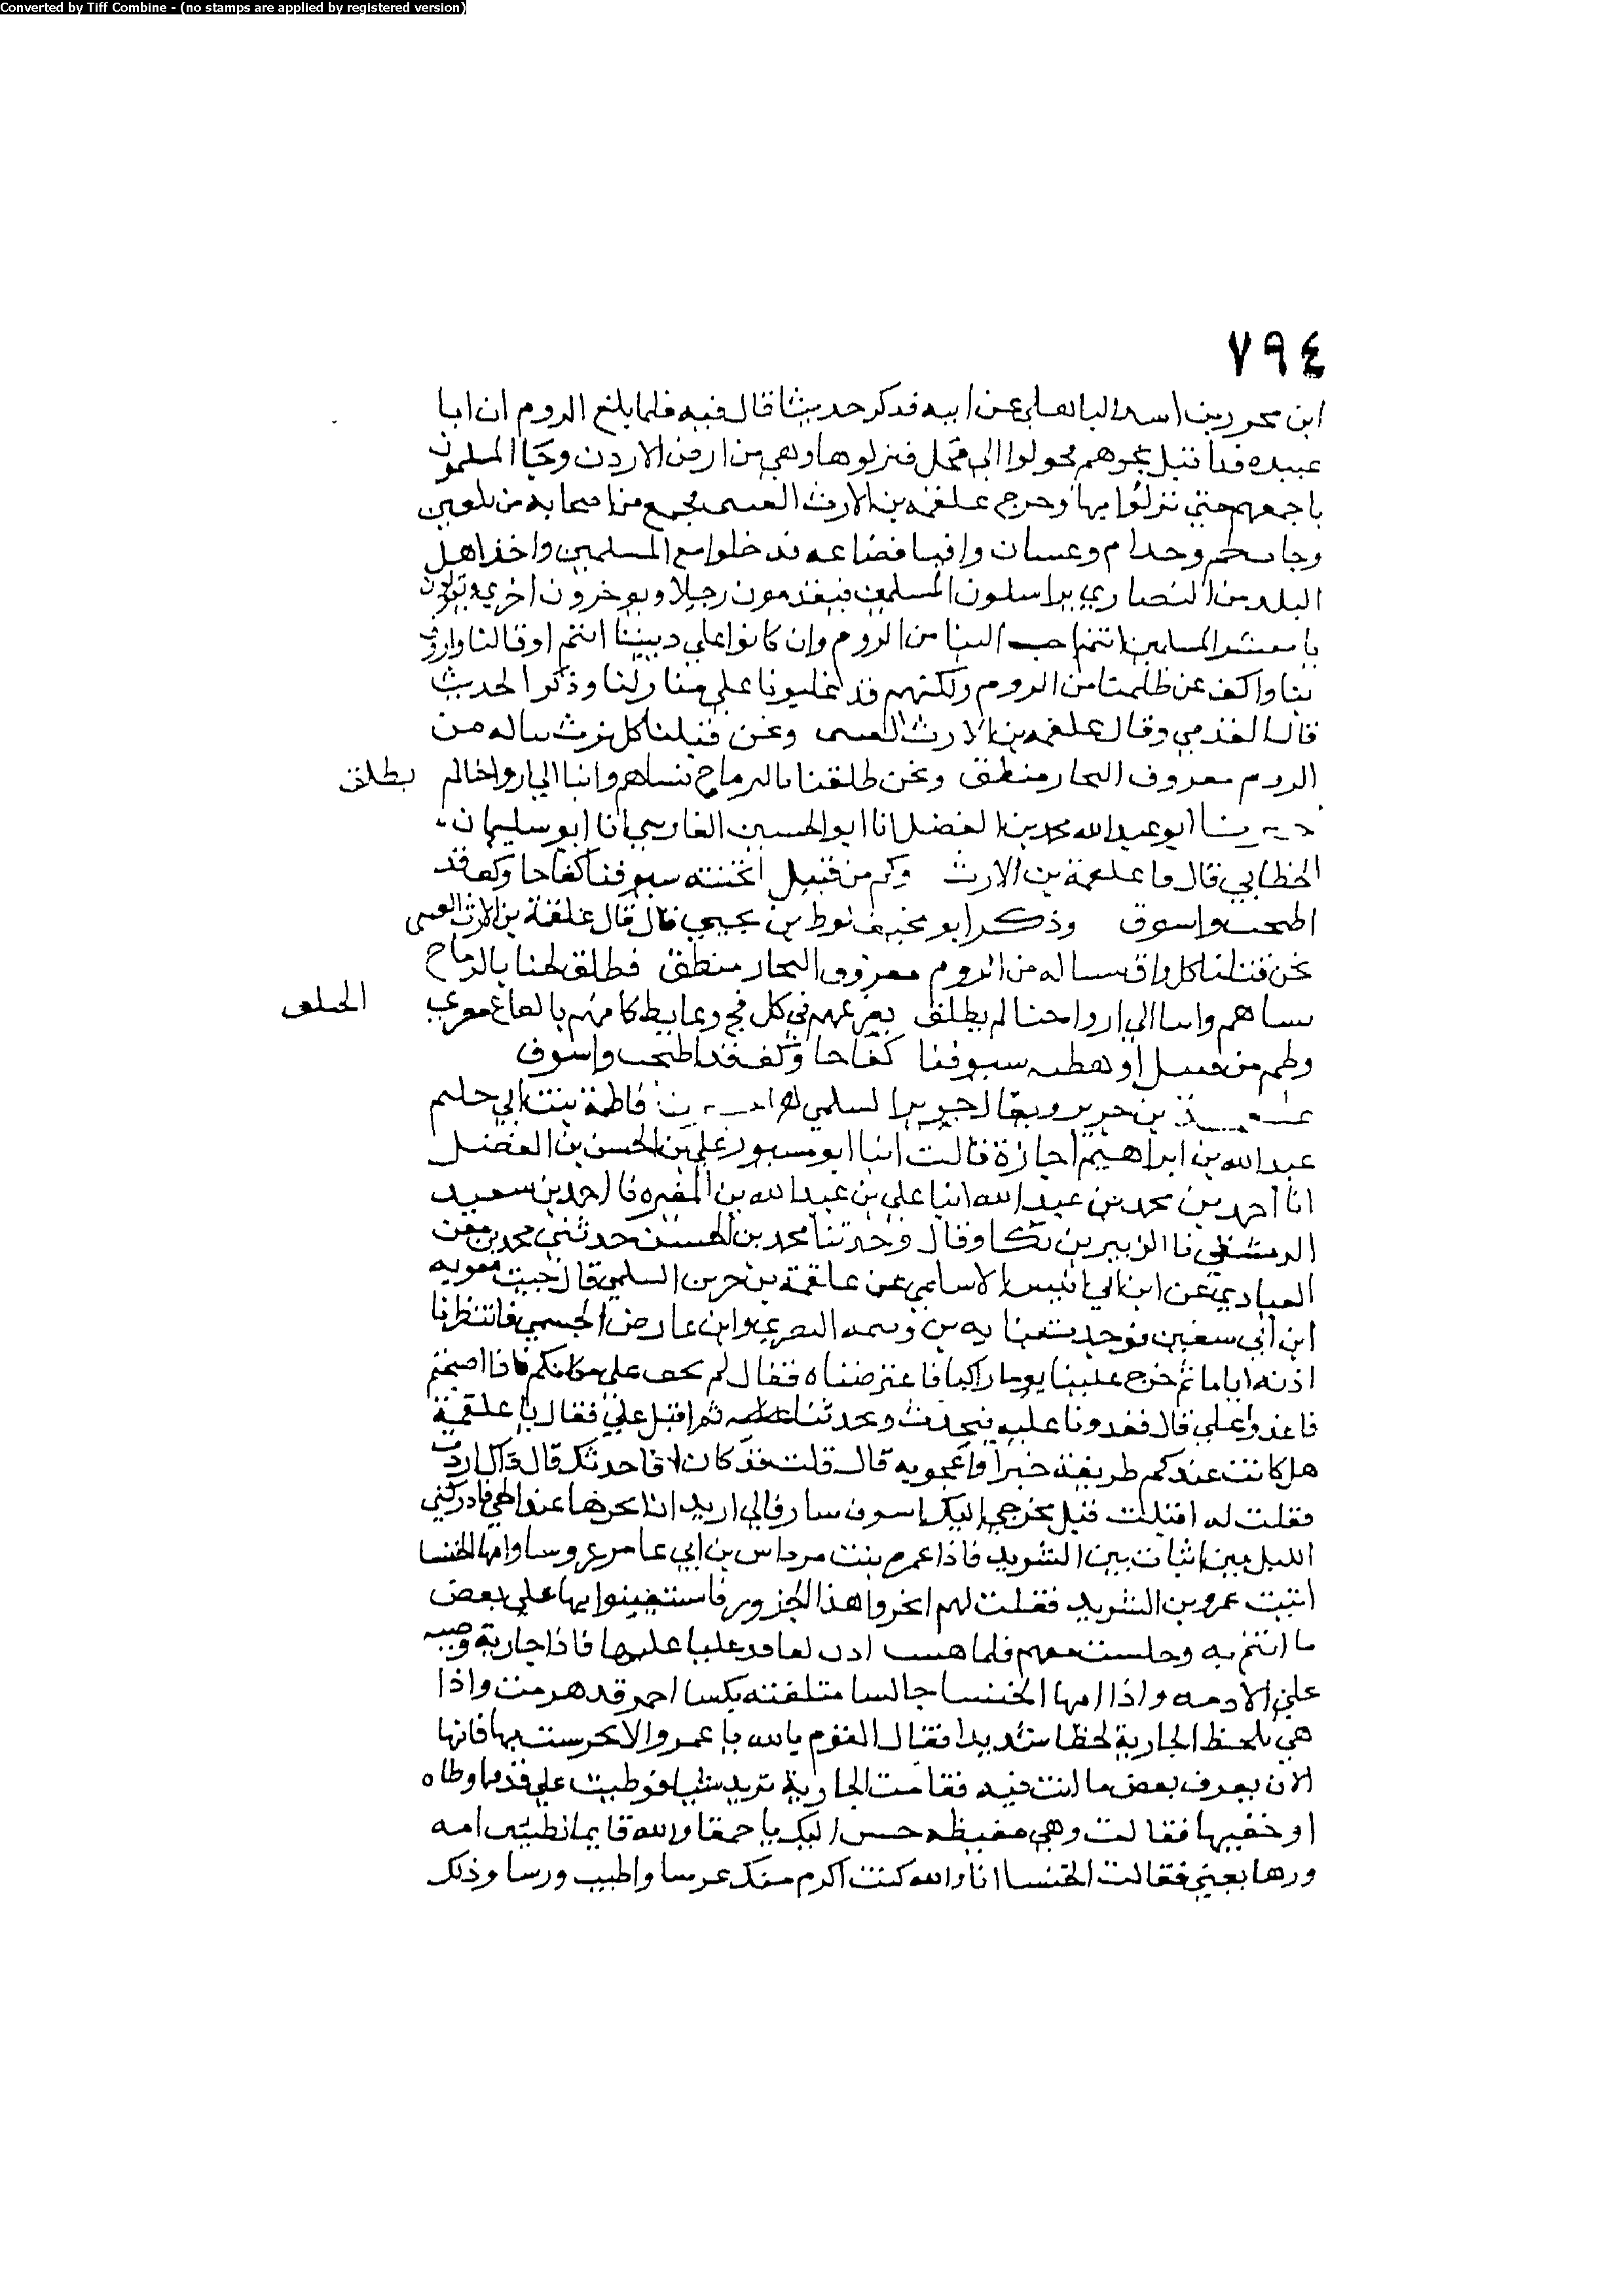 Converted by Tiff Combine - (no stamps are applied by registered version)
٧٩٤
ابن محرر بن اسد الباهلي عن ابيه فذكر حديثا قال فيه فلما بلغ الروم ان ابا
عبيده قد اقبل نحوهم تحولوا الى فحل فنزلوها وهي من ارض الاردن وجا المسلمون
باجمعهم حتي نزلوا بها وخرج علقمه بن الارث العسى مجمع من اصحابه من بلقين
وجات لخم وجدام وغسان وافنا قضاعه قد خلوا مع المسلمين واخذ اهل
البلد من النصاري يراسلون المسلمين فيقدمون رجلا ويوخرون اخري ويقولون
يا معشر المسلمين انتم احب الينا من الروم وان كانوا علي ديننا انتم اوفا لنا واروف
بنا واكف عن ظلمنا من الروم ولكنهم قد غلبونا علي منازلنا وذكر الحديث
قال القدمي وقال علقمه بن الارث العسى ونحن قتلنا كل ساله من
الروم معروف النجار منطق ونحن طلقنا بالرماح نساهم وابنا الي ارواحنا لم يطلق
ابو عبد الله محمد بن الفضل انا ابو الحسين الفارسي انا ابو سليمان
الخطابي قال ما علقمة بن الارث وكم من قتيل سيوفنا كفاحا وكف قد
اطحت واسوق وذكر ابو مخنف لوط بن يحيي قال قال علقمة بن الارث العسى
نحن قتلنا كل واف ساله من الروم معروف النجار منطق فطلق لهنا بالرماح
نساهم وابنا الي ارواحنا لم يطلق في كل فج وغايط كا منهم بالقاع
وكم من قتيل اوهطه سيوفنا كفاحا وكف قد اطحت واسوق
الحلق
علقمة بن جرير ويقال جوير السلمي فاطمة بنت ابي حليم
عبد الله بن ابراهيم اجازة قالت انبا ابو منصور علي بن الحسن بن الفضل
انا احمد بن محمد بن عبد الله انبا علي بن عبد الله بن المغيره نا احمد بن سعيد
الدمشقي نا الزبير بن بكار قال وحدثنا محمد بن الحسن حدثني محمد بن معن
العبادي عن ابن ابي انيس الاسلمي عن علقمة بن جرير السلمي قال جيت معويه
ابن ابي سفين فوجدت ببابه بن وسمه النصري وابن عارض الجسمي فانتظرنا
اذنه اياما ثم خرج علينا يوما راكبا فاعترضناه فقال لم يخف علي مكانكم فاذا اصبحتم
فاغدوا علي قال فغدونا عليه فتحدث وتحدثنا ثم اقبل علي فقال يا علقمة
هل كانت عندكم طريفة خبر او اعجوبه قال قلت قد كان لا قا حدثك قال ذاك اردت
فقلت له اقبلت قبل مخرجي اليك اسوق سارفالي اريد ان انحرها عند الحي فادركني
الليل بين ابيات بين الشريد فاذا عمره بنت مرداس بن ابي عامر عروسا وامها الخنسا
ابنت عمرو بن الشريد فقلت لهم انحروا هذا الجزور فاستعينوا بها علي بعض
ما انتم به وجلست معهم فلما هيت ادن لها فدخلنا عليها فاذا جارية وضيه
علي الادمه واذا امها الخنسا جالسا متلففه بكسا احمر قد هرمت واذا
هي تلحظ الجارية لحظا شديدا فقال القوم بالله يا عمرو الا تحرست بها فانها
الان تعرف بعض ما انت فيه فقامت الجارية تريد شيا فوطيت علي قدمها وطاه
اوخفتها فقالت وهي مغيظه حس اليك يا حمقا والله قايما تطيين امه
ورها بعيني فقالت الخنسا انا والله كنت اكرم منك عرسا واطيب ورسا وذلك